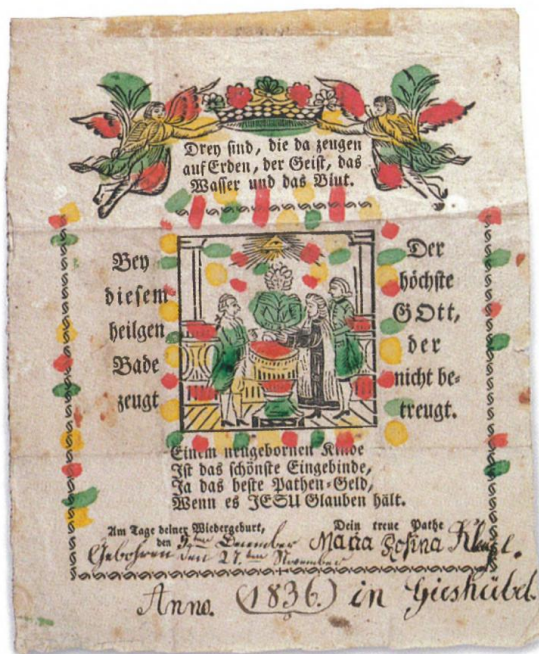 Drey sind, die da zeugen
auf Erden, der Geist, das
Wasser und das Blut.
Bey
diesem
heilgen
Bade
zeugt
Der
höchste
GOtt,
der
nicht be-
treugt.
Einem neugebornen Kinde
Ist das schönste Eingebinde,
Ja das beste Pathen-Geld,
Wenn es JESU Glauben hält.
Am Tage deiner Wiedergeburt,
den
December
Dein treue Pathe
Maria Rosina
Gebohren den 27.ten November
Anno. (1836.) in Gieshübel.